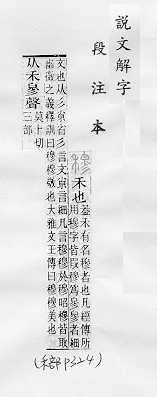 說文解字
段注本
穆 禾也 葢禾有名穆者也凡經傳所
用穆字皆叚穆爲㣎㣎者細
文也从彡𡭴省彡言文𡭴言細凡言穆穆於穆昭穆皆取
幽微之義釋訓曰穆穆敬也大雅文王傳曰穆穆美也
从禾㣎聲 莫卜切
三部
(禾部P324)